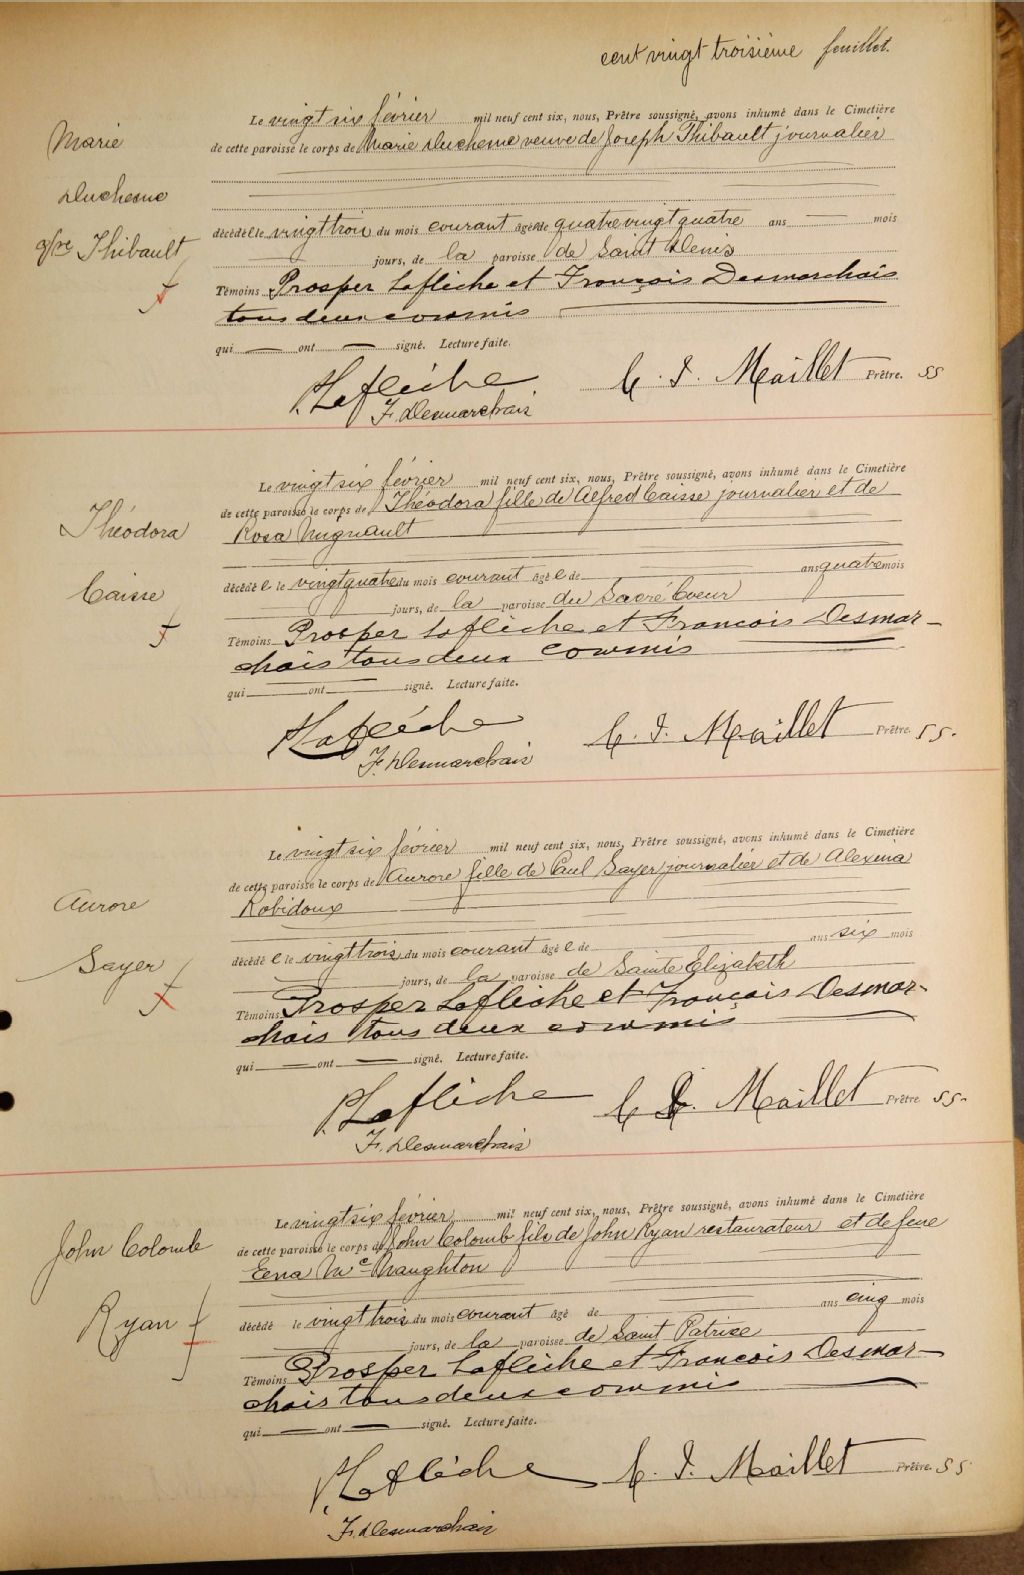 cent vingt troisième feuillet.
Le vingt six février mil neuf cent six, nous, Prêtre soussigné, avons inhumé dans le Cimetière
Marie
de cette paroisse le corps de Marie Duchesne veuve de Joseph Thibault journalier
Duchesne
décédée le vingt trois du mois courant âgée de quatre vingt quatre ans mois
Thibault
jours, de la paroisse de Saint Denis
Témoins Prosper Laflèche et François Desmarchais
tous deux commis
qui ont signé. Lecture faite.
P. Laflèche C. J. Maillet Prêtre. SS
F. Desmarchais
Le vingt six février mil neuf cent six, nous, Prêtre soussigné, avons inhumé dans le Cimetière
Théodora
de cette paroisse le corps de Théodora fille de Alfred Caisse journalier et de
Rosa Mignault
Caisse
décédée le vingt quatre du mois courant âgée de ans quatre mois
jours, de la paroisse du Sacré Coeur
Témoins Prosper Laflèche et Francois Desmar-
chais tous deux commis
qui ont signé. Lecture faite.
P. Laflèche C. J. Maillet Prêtre. SS.
F. Desmarchais
Le vingt six février mil neuf cent six, nous, Prêtre soussigné, avons inhumé dans le Cimetière
Aurore
de cette paroisse le corps de Aurore fille de Paul Sayer journalier et de Alexina
Robidoux
Sayer
décédée le vingt trois du mois courant âgée de ans six mois
jours, de la paroisse de Sainte Elizabeth
Témoins Prosper Laflèche et François Desmar-
chais tous deux commis
qui ont signé. Lecture faite.
P. Laflèche C. J. Maillet Prêtre SS.
F. Desmarchais
Le vingt six février mil neuf cent six, nous, Prêtre soussigné, avons inhumé dans le Cimetière
John Colomb
de cette paroisse le corps de John Colomb fils de John Ryan restaurateur et de feue
Ena Mc Naughton
Ryan
décédé le vingt trois du mois courant âgé de ans cinq mois
jours, de la paroisse de Saint Patrice
Témoins Prosper Laflèche et Francois Desmar-
chais tous deux commis
qui ont signé. Lecture faite.
P. Laflèche C. J. Maillet Prêtre. SS
F. Desmarchais